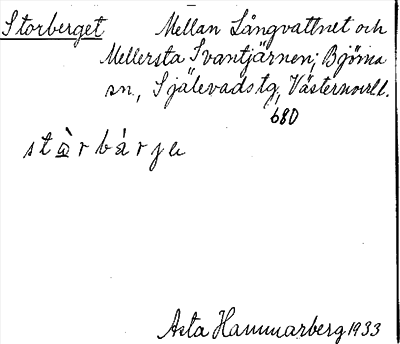 Storberget Mellan Långvattnet och
Mellersta Svantjärnen; Björna
sn., Själevads tg, Västernorrl.
680
stὰrbárje
Asta Hammarberg 1933